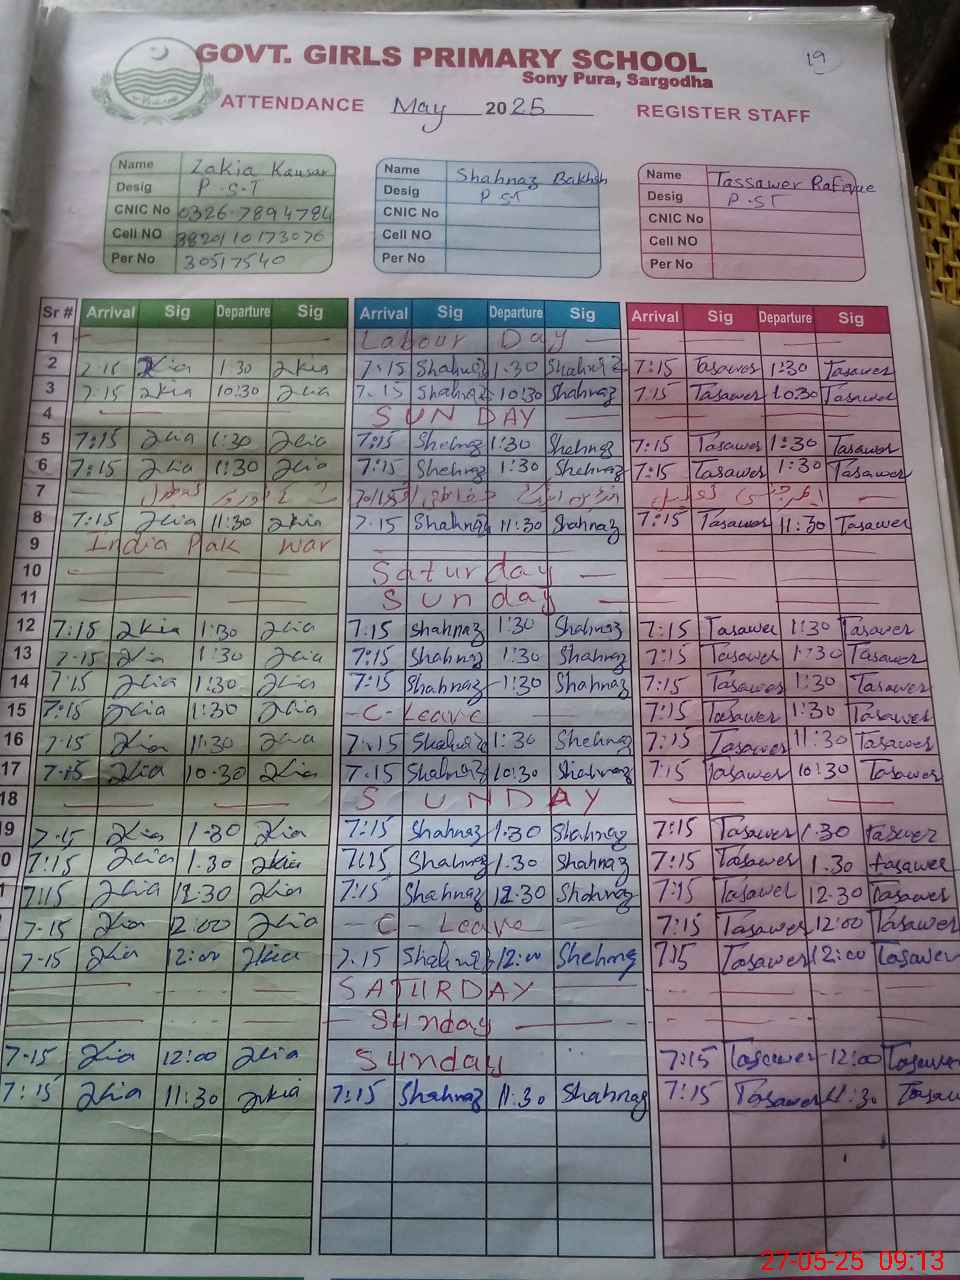 GOVT. GIRLS PRIMARY SCHOOL
19
Sony Pura, Sargodha
ATTENDANCE May 2025 REGISTER STAFF
Name Zakia Kausar
Desig P.S.T
CNIC No 0326-7894784
Cell NO 3820110173076
Per No 30517540
Name Shahnaz Bakhsh
Desig P ST
CNIC No
Cell NO
Per No
Name Tassawer Rafique
Desig P.ST
CNIC No
Cell NO
Per No
Sr # Arrival Sig Departure Sig Arrival Sig Departure Sig Arrival Sig Departure Sig
1 Labour Day
2 7:15 2kia 1:30 2kia 7:15 Shahnaz 1:30 Shahnaz 7:15 Tasawer 1:30 Tasawer
3 7:15 2kia 10:30 2kia 7:15 Shahnaz 10:30 Shahnaz 7:15 Tasawer 10:30 Tasawer
4 SUNDAY
5 7:15 2kia 1:30 2kia 7:15 Shehnaz 1:30 Shehnaz 7:15 Tasawer 1:30 Tasawer
6 7:15 2kia 1:30 2kia 7:15 Shehnaz 1:30 Shehnaz 7:15 Tasawer 1:30 Tasawer
7
8 7:15 2kia 11:30 2kia 7:15 Shahnaz 11:30 Shahnaz 7:15 Tasawer 11:30 Tasawer
9 India Pak War
10 Saturday
11 Sunday
12 7:15 2kia 1:30 2kia 7:15 Shahnaz 1:30 Shahnaz 7:15 Tasawer 1:30 Tasawer
13 7:15 2kia 1:30 2kia 7:15 Shahnaz 1:30 Shahnaz 7:15 Tasawer 1:30 Tasawer
14 7:15 2kia 1:30 2kia 7:15 Shahnaz 1:30 Shahnaz 7:15 Tasawer 1:30 Tasawer
15 7:15 2kia 1:30 2kia -C-Leave 7:15 Tasawer 1:30 Tasawer
16 7:15 2kia 11:30 2kia 7:15 Shahnaz 1:30 Shehnaz 7:15 Tasawer 11:30 Tasawer
17 7:15 2kia 10:30 2kia 7:15 Shahnaz 10:30 Shahnaz 7:15 Tasawer 10:30 Tasawer
18 SUNDAY
19 7:15 2kia 1:30 2kia 7:15 Shahnaz 1:30 Shahnaz 7:15 Tasawer 1:30 Tasawer
0 7:15 2kia 1:30 2kia 7:15 Shahnaz 1:30 Shahnaz 7:15 Tasawer 1:30 Tasawer
1 7:15 2kia 12:30 2kia 7:15 Shahnaz 12:30 Shahnaz 7:15 Tasawer 12:30 Tasawer
7:15 2kia 12:00 2kia -C-Leave 7:15 Tasawer 12:00 Tasawer
7:15 2kia 12:00 2kia 7:15 Shahnaz 12:00 Shehnaz 7:15 Tasawer 12:00 Tasawer
SATURDAY
Sunday
7:15 2kia 12:00 2kia Sunday 7:15 Tasawer 12:00 Tasawer
7:15 2kia 11:30 2kia 7:15 Shahnaz 11:30 Shahnaz 7:15 Tasawer 11:30 Tasaw
27-05-25 09:13